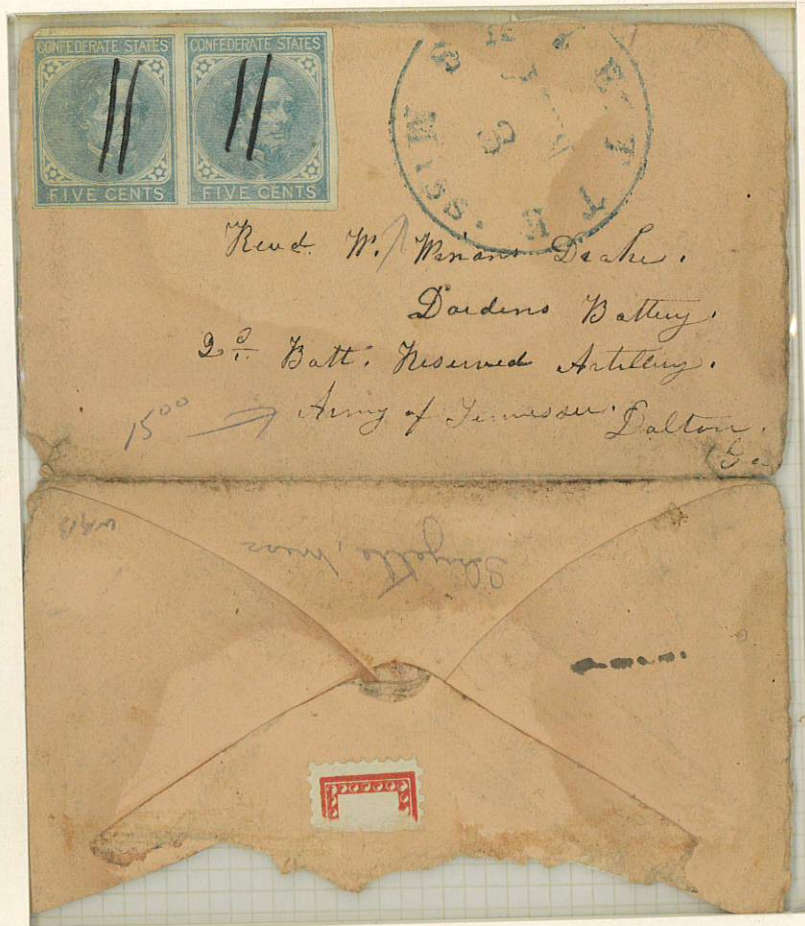 CONFEDERATE STATES
FIVE CENTS
CONFEDERATE STATES
FIVE CENTS
MISS.
Revd. W. Winans Drake.
Dardens Battery.
2d. Batt. Reserved Artillery.
Army of Tennessee. Dalton.
Ga
1500
Miss